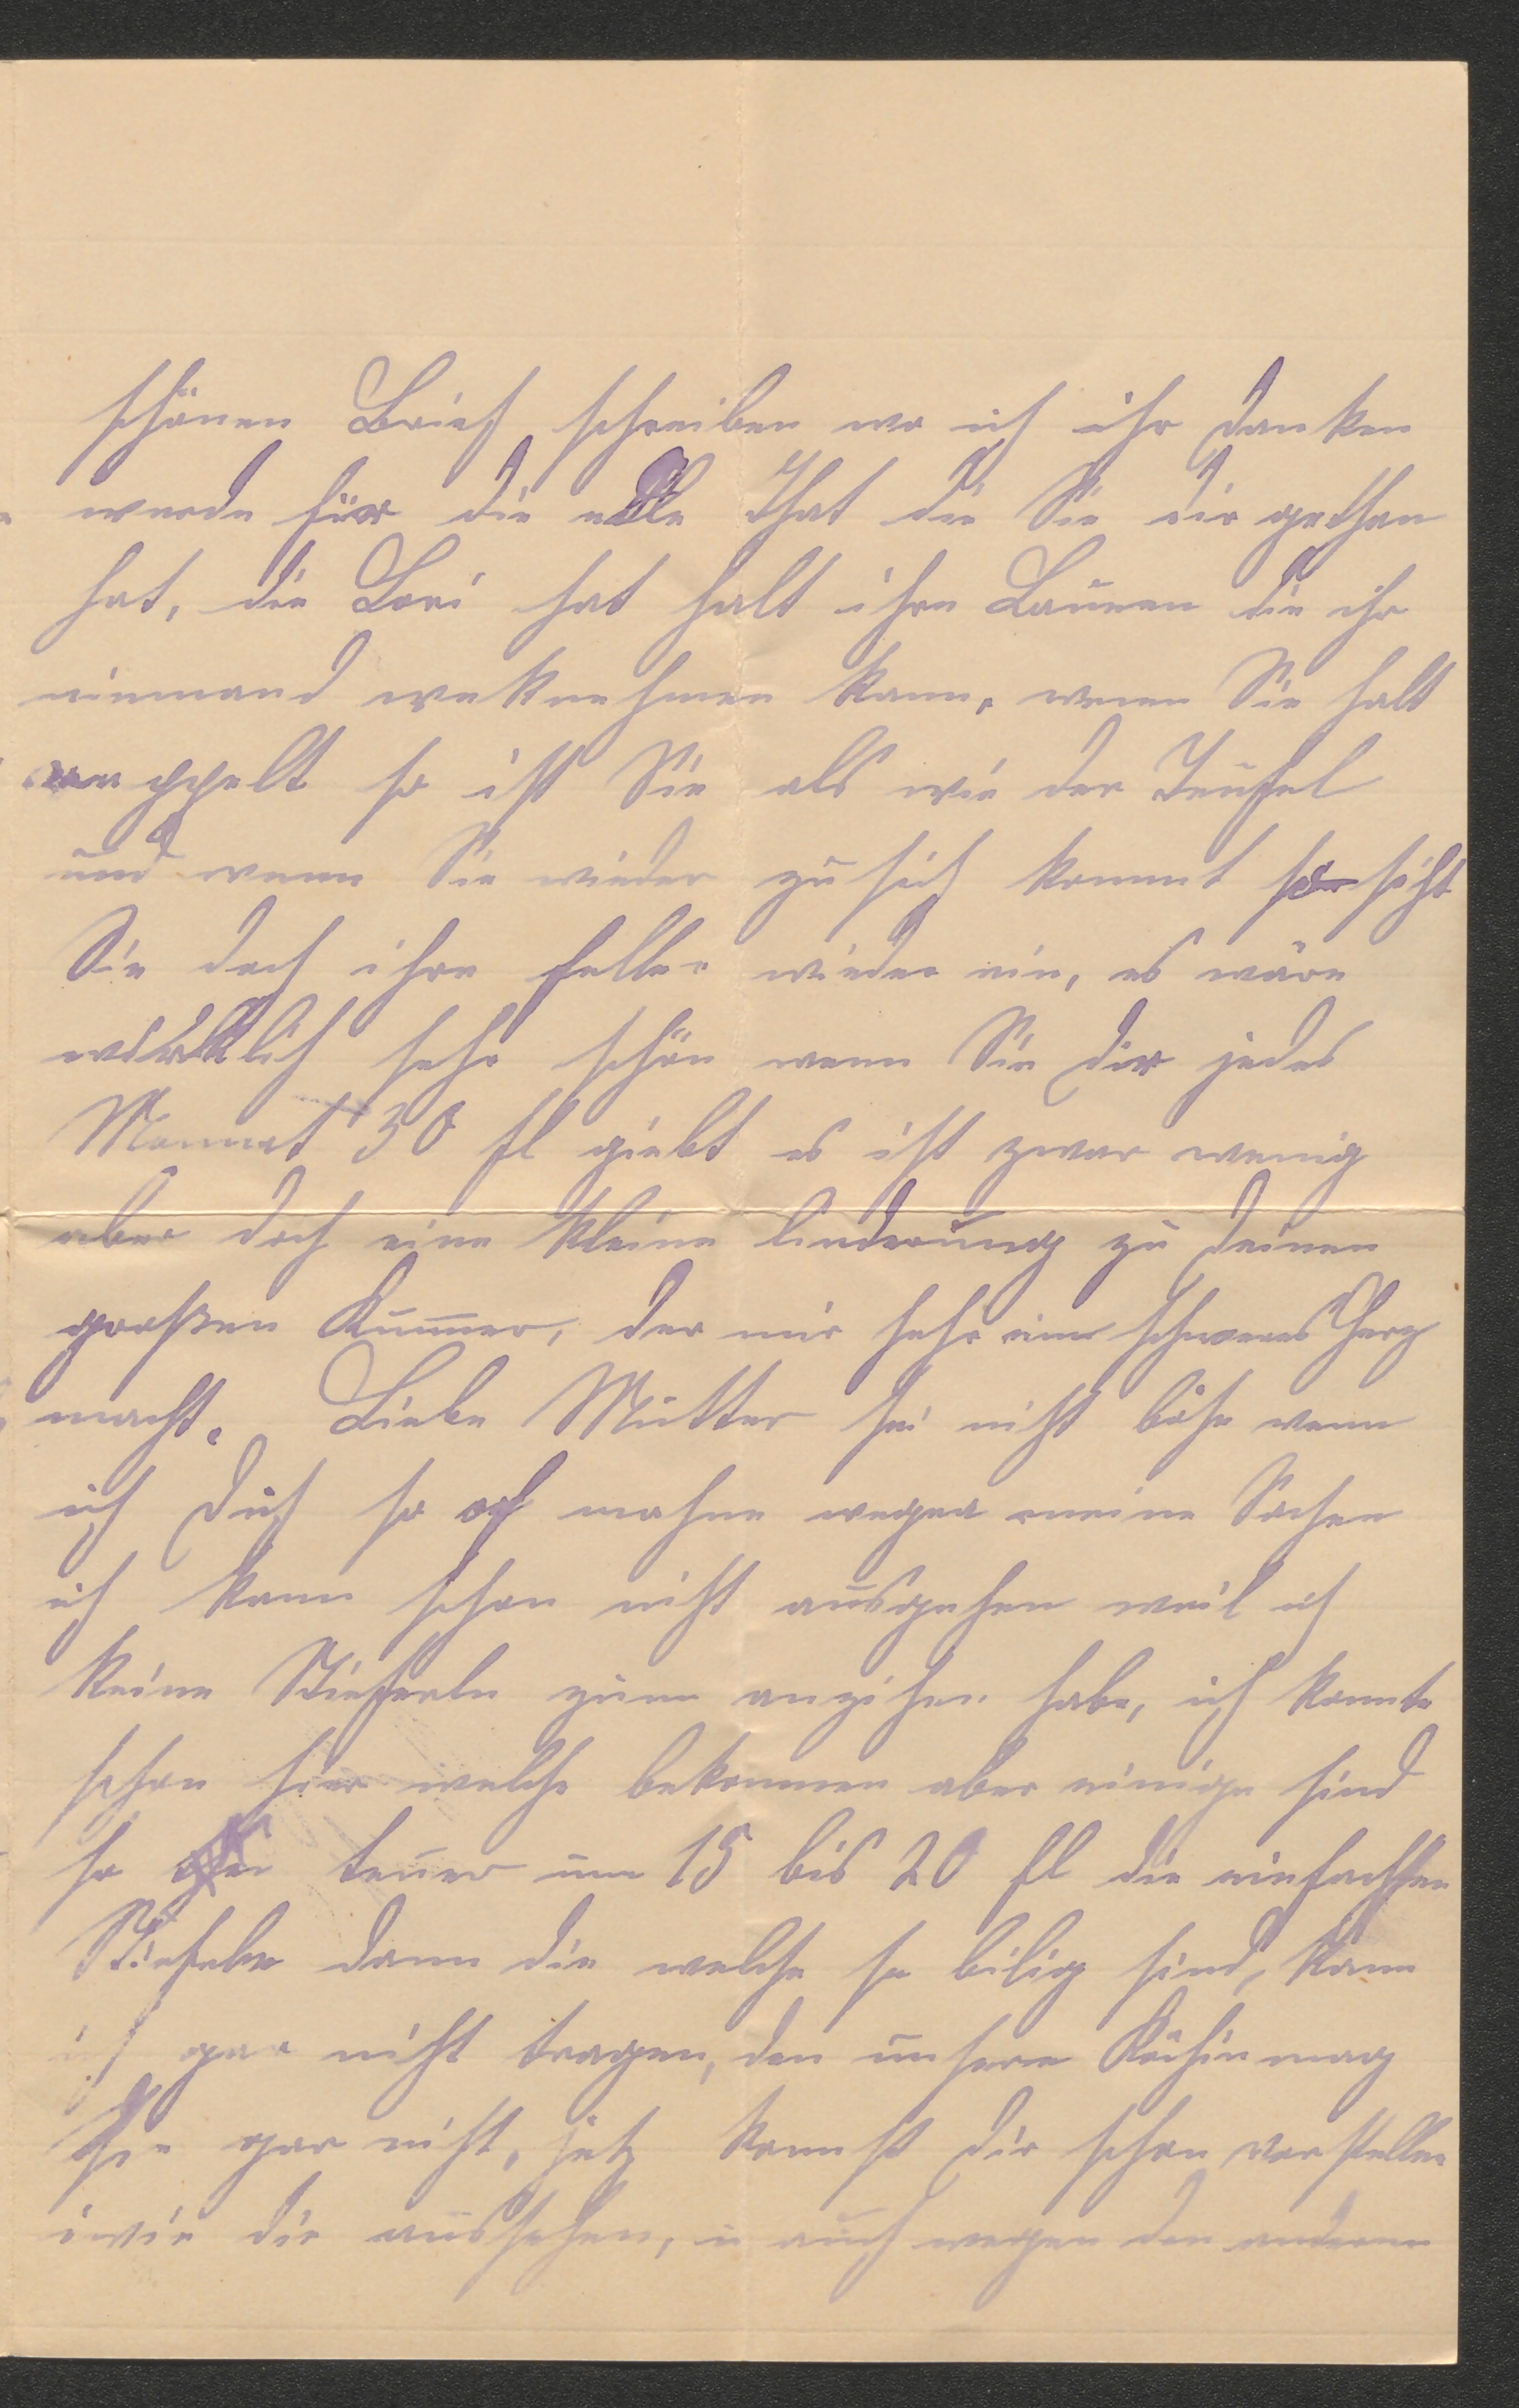 schönen Brief schreiben wo ich ihr danken
werde für die edle That die Sie dir gethan
hat, die Lori hat halt ihre Launen die ihr
niemand weknehmen kann, wenn Sie halt
so ist Sie als wie der Teufel
und wenn Sie wieder zu sich kommt so siht
Sie doch ihre feller wieder ein, es wäre
wirklich sehr schön wenn Sie dir jedes
Monnat 30 fl giebt es ist zwar wenig
aber doch eine kleine linderung zu deinen
großen Kummer, der mir sehr ein schweres Herz
macht. Liebe Mutter sei nicht böse wenn
ich dich so of mahne wegen meine Sachen
ich kann schon nicht ausgehen weil ich
keine Stieferln zum anzihen habe, ich konnte
schon hier welche bekommen aber einige sind
so teuer um 15 bis 20 fl die einfachsten
Stiefeln dann die welche so bilig sind, kann
ich gar nicht tragen, den unsere Köchin mag
Sie gar nicht, jetz kannst dir schon vorstellen
wie die aussehen, u auch wegen den anderen